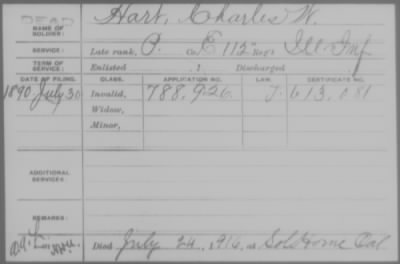 DEAD
NAME OF SOLDIER: Hart, Charles W.
SERVICE: Late rank, P. Co. E 112" Reg't Ill Inf
TERM OF SERVICE: Enlisted , 1 , Discharged
DATE OF FILING. CLASS. APPLICATION NO. LAW. CERTIFICATE NO.
1890 July 30 Invalid, 788,926 J. 613,081
Widow,
Minor,
ADDITIONAL SERVICES:
REMARKS:
Died July 24, 1916, at Sold Home Cal